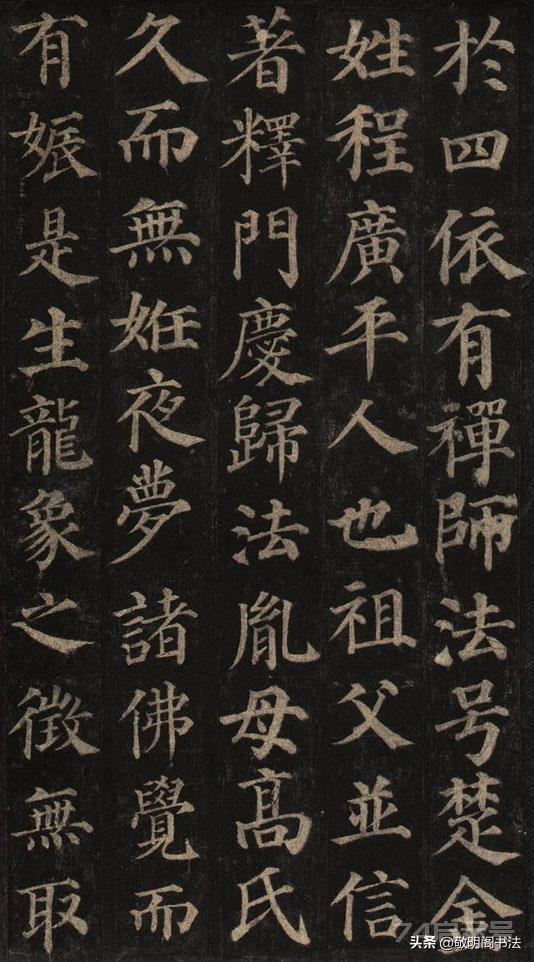 於四依有禪師法号楚金
姓程廣平人也祖父並信
著釋門慶歸法胤母高氏
久而無姙夜夢諸佛覺而
有娠是生龍象之徵無取
头条 @敬明阁书法